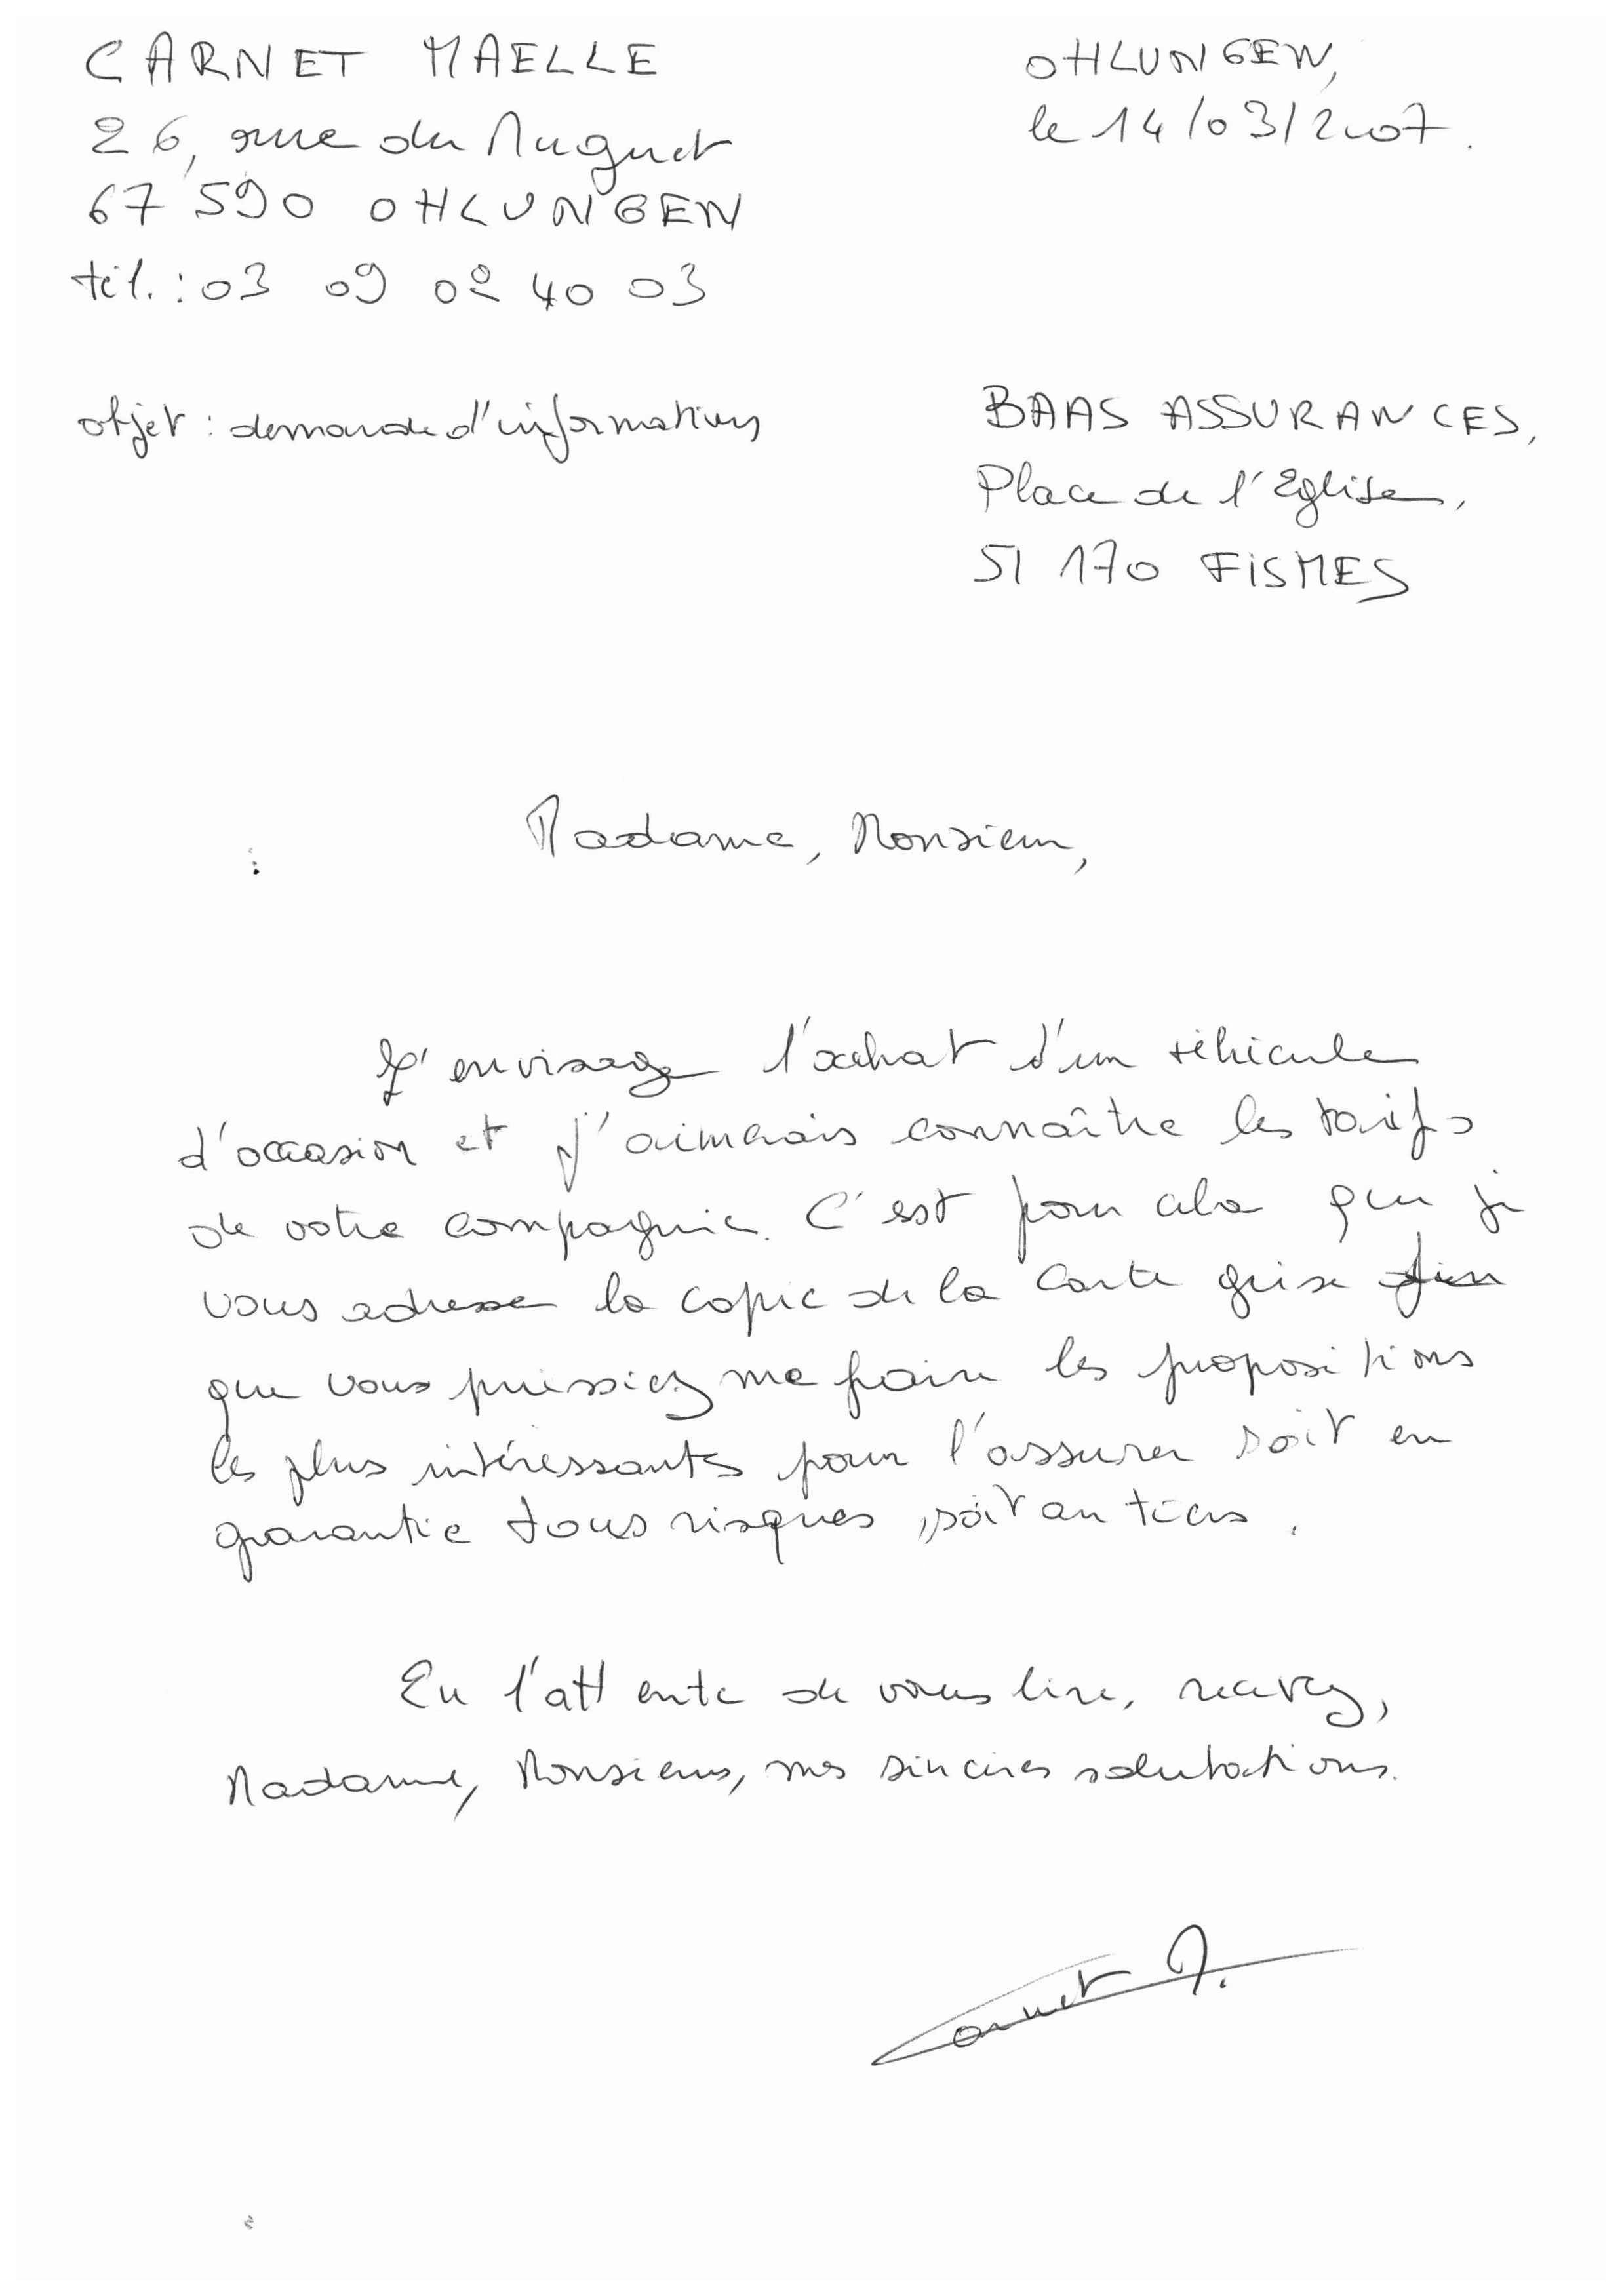 CARNET MAELLE
26, rue du Muguet
67 590 OHLUNGEN
tél. : 03 09 02 40 03
OHLUNGEN,
le 14/03/2007.
objet : demande d'informations
BAAS ASSURANCES,
Place de l'Eglise,
51 170 FISMES
Madame, Monsieur,
J'envisage l'achat d'un véhicule
d'occasion et j'aimerais connaître les tarifs
de votre compagnie. C'est pour cela que je
vous adresse la copie de la carte grise afin
que vous puissiez me faire les propositions
les plus intéressantes pour l'assurer soit en
garantie tous risques, soit au tiers.
En l'attente de vous lire, recevez,
Madame, Monsieur, mes sincères salutations.
Carnet M.